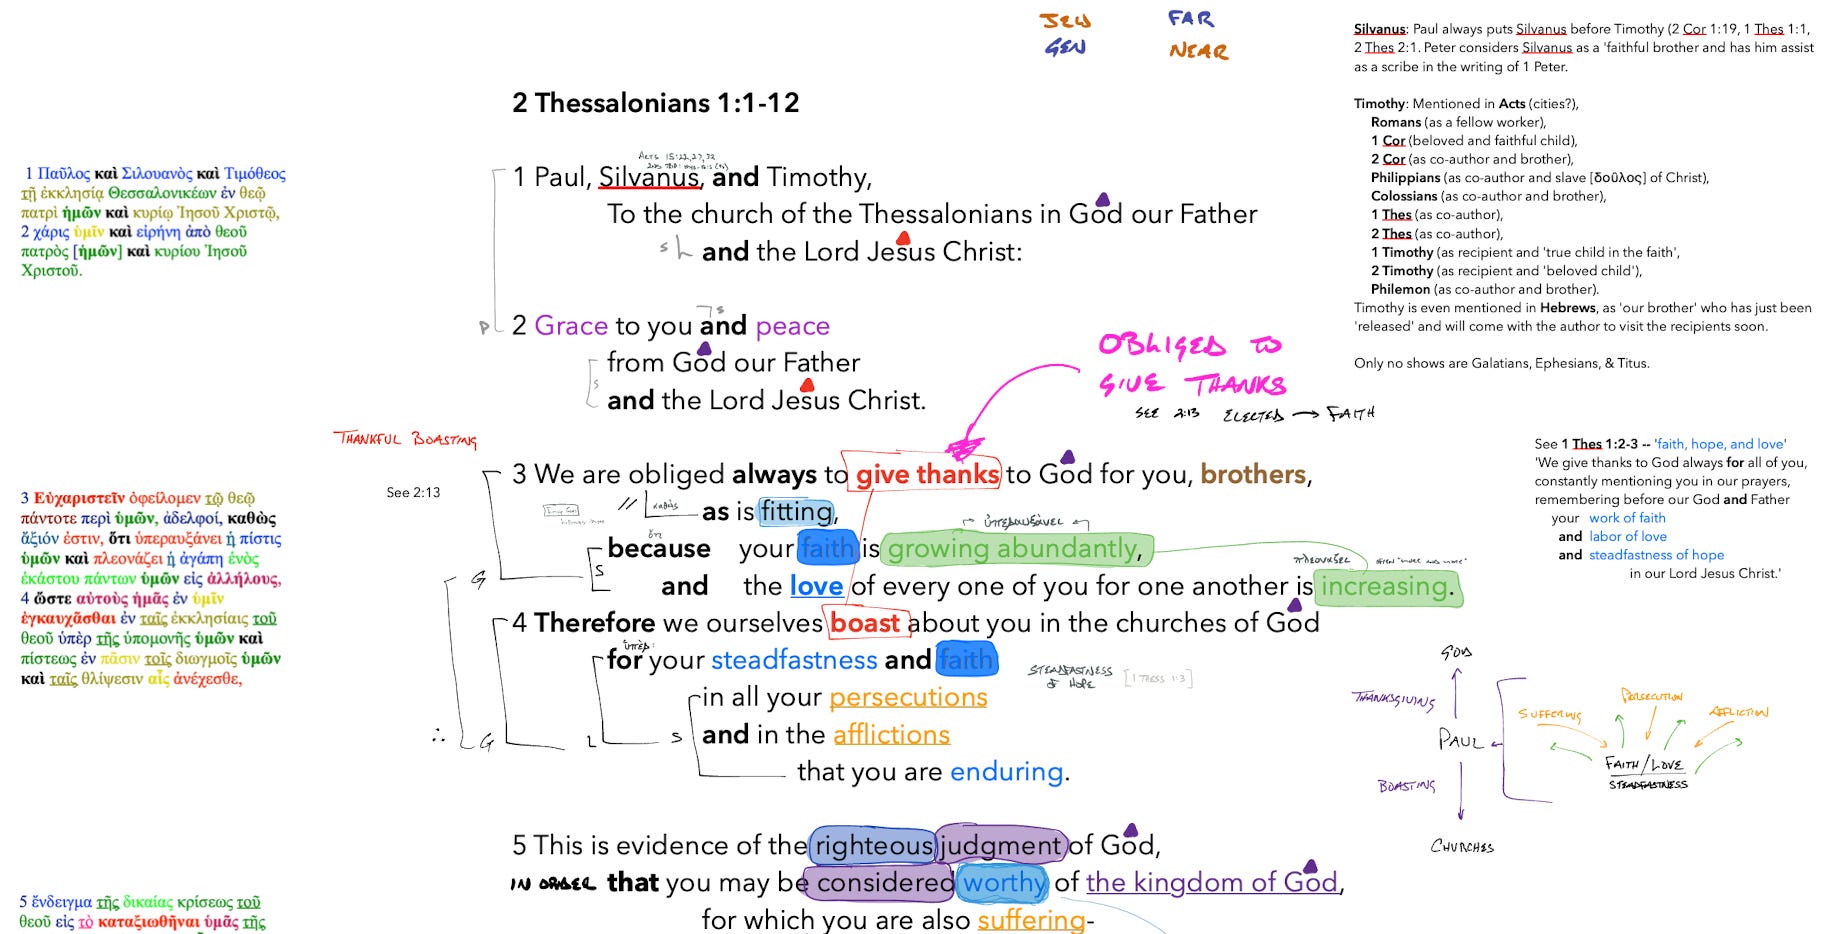 JEW FAR
GEN NEAR
Silvanus: Paul always puts Silvanus before Timothy (2 Cor 1:19, 1 Thes 1:1,
2 Thes 2:1. Peter considers Silvanus as a 'faithful brother and has him assist
as a scribe in the writing of 1 Peter.
Timothy: Mentioned in Acts (cities?),
Romans (as a fellow worker),
1 Cor (beloved and faithful child),
2 Cor (as co-author and brother),
Philippians (as co-author and slave [δοῦλος] of Christ),
Colossians (as co-author and brother),
1 Thes (as co-author),
2 Thes (as co-author),
1 Timothy (as recipient and 'true child in the faith',
2 Timothy (as recipient and 'beloved child'),
Philemon (as co-author and brother).
Timothy is even mentioned in Hebrews, as 'our brother' who has just been
'released' and will come with the author to visit the recipients soon.
Only no shows are Galatians, Ephesians, & Titus.
2 Thessalonians 1:1-12
1 Παῦλος καὶ Σιλουανὸς καὶ Τιμόθεος
τῇ ἐκκλησίᾳ Θεσσαλονικέων ἐν θεῷ
πατρὶ ἡμῶν καὶ κυρίῳ Ἰησοῦ Χριστῷ,
2 χάρις ὑμῖν καὶ εἰρήνη ἀπὸ θεοῦ
πατρὸς [ἡμῶν] καὶ κυρίου Ἰησοῦ
Χριστοῦ.
ACTS 15:22,27,32
1 Paul, Silvanus, and Timothy,
To the church of the Thessalonians in God our Father
s h and the Lord Jesus Christ:
s
P 2 Grace to you and peace
from God our Father
s
and the Lord Jesus Christ.
OBLIGED TO
GIVE THANKS
SEE 2:13 ELECTED → FAITH
THANKFUL BOASTING
See 2:13
3 We are obliged always to give thanks to God for you, brothers,
// καθὼς as is fitting,
ὑπεραυξάνει
ὅτι
because your faith is growing abundantly,
πλεονάζει OFTEN "MORE AND MORE"
G S and the love of every one of you for one another is increasing.
4 Therefore we ourselves boast about you in the churches of God
ὑπὲρ
for your steadfastness and faith
STEADFASTNESS
OF HOPE [1 THESS 1:3]
in all your persecutions
∴ G L S and in the afflictions
that you are enduring.
3 Εὐχαριστεῖν ὀφείλομεν τῷ θεῷ
πάντοτε περὶ ὑμῶν, ἀδελφοί, καθὼς
ἄξιόν ἐστιν, ὅτι ὑπεραυξάνει ἡ πίστις
ὑμῶν καὶ πλεονάζει ἡ ἀγάπη ἑνὸς
ἑκάστου πάντων ὑμῶν εἰς ἀλλήλους,
4 ὥστε αὐτοὺς ἡμᾶς ἐν ὑμῖν
ἐγκαυχᾶσθαι ἐν ταῖς ἐκκλησίαις τοῦ
θεοῦ ὑπὲρ τῆς ὑπομονῆς ὑμῶν καὶ
πίστεως ἐν πᾶσιν τοῖς διωγμοῖς ὑμῶν
καὶ ταῖς θλίψεσιν αἷς ἀνέχεσθε,
See 1 Thes 1:2-3 -- 'faith, hope, and love'
'We give thanks to God always for all of you,
constantly mentioning you in our prayers,
remembering before our God and Father
your work of faith
and labor of love
and steadfastness of hope
in our Lord Jesus Christ.'
GOD
THANKSGIVING
PAUL
BOASTING
CHURCHES
SUFFERING
PERSECUTION
AFFLICTION
FAITH/LOVE
STEADFASTNESS
5 This is evidence of the righteous judgment of God,
IN ORDER that you may be considered worthy of the kingdom of God,
for which you are also suffering-
5 ἔνδειγμα τῆς δικαίας κρίσεως τοῦ
θεοῦ εἰς τὸ καταξιωθῆναι ὑμᾶς τῆς